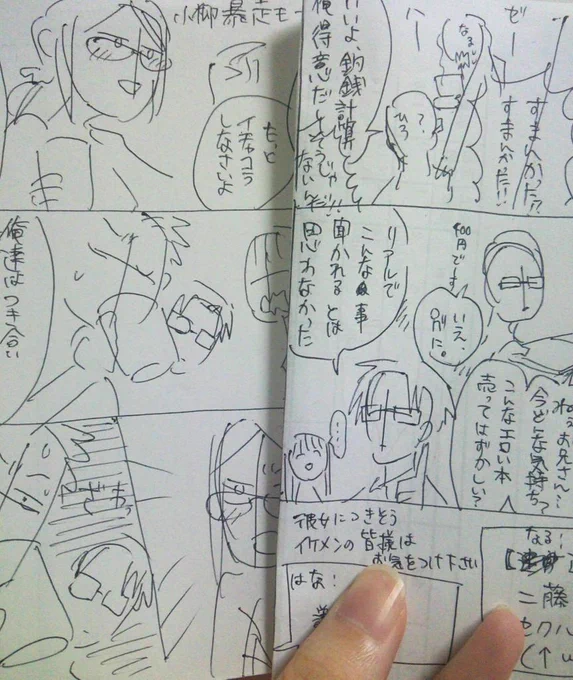 ゼー
ハー
なる
すまんかった!?
すまんかった!!
?
ひろ
いいよ、釣銭計算とって
俺得意だし
400円です
いえ、
別に。
ねぇお兄さん…
今どんな気持ち?
こんなエロい本
売ってはずかしい?
リアルで
こんな事
聞かれるとは
思わなかった
……
彼女につきそう
イケメンの皆様は
お気をつけ下さい
なる!
二藤
セクハ
はな!
小柳暴走モー
もっと
イチャコラ
しなさいよ
俺達はつき合い